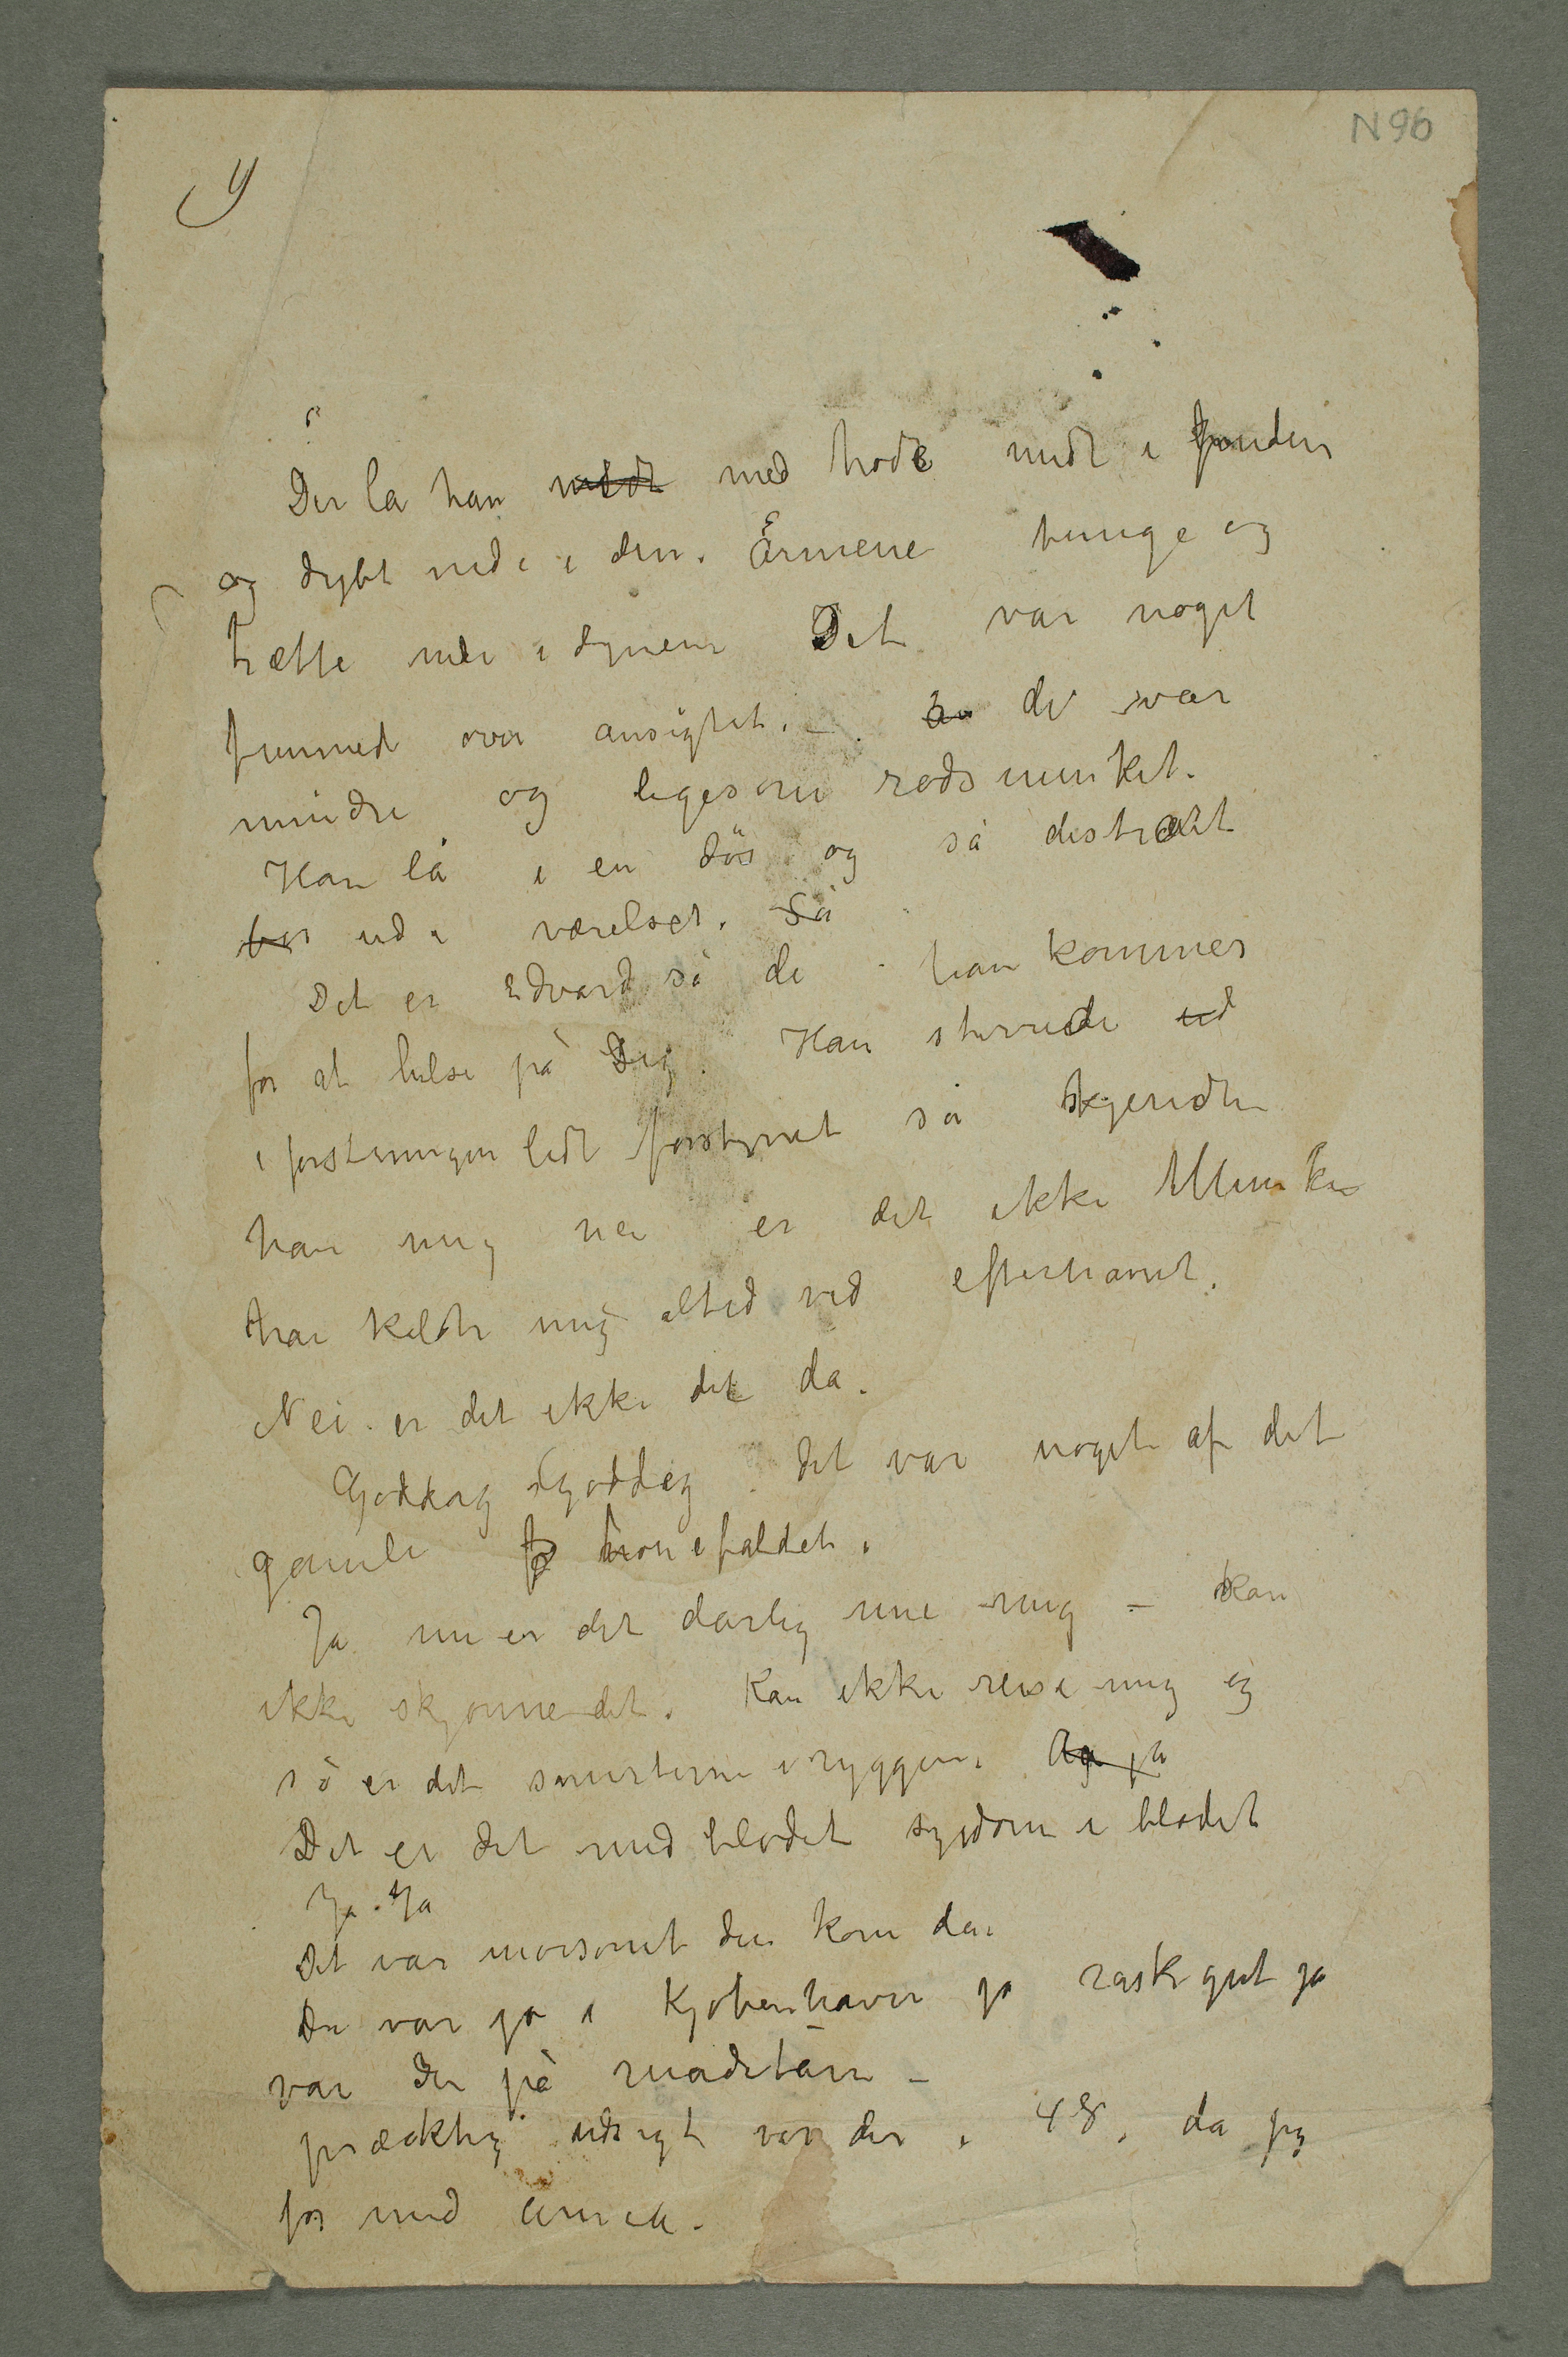 N 96
Der la han midt med hode midt i puden
og dybt ned i den. Armene tunge og
trætte nede i dynen Det var noget
fremmed over ansigtet. – de var
mindre og ligesom rødsminket.
Han lå i en døs og så distrakt
ud i værelset. Så
Det er Edvard sa de – han kommer
for at hilse på Dig. Han stirrede ud
i forstningen lidt forstyrret så kjendte
han mig nei er det ikke Munk
han kaldte mig altid ved efternavnet.
Nei. er det ikke det da.
Goddag Goddag det var noget af det
gamle tonefaldet.
Ja nu er det dårlig me mig – kan
ikke skjønne det. Kan ikke reise mig og
så er det smerterne i ryggen. Og ja
Det er det med blodet sygdom i blodet
Ja. Ja
Det var morsomt du kom da.
Du var jo i Kjøbenhavn ja rask gut ja
var Du på rundetårn –
præktig udsigt var der i 48, da jeg
for med armeen.